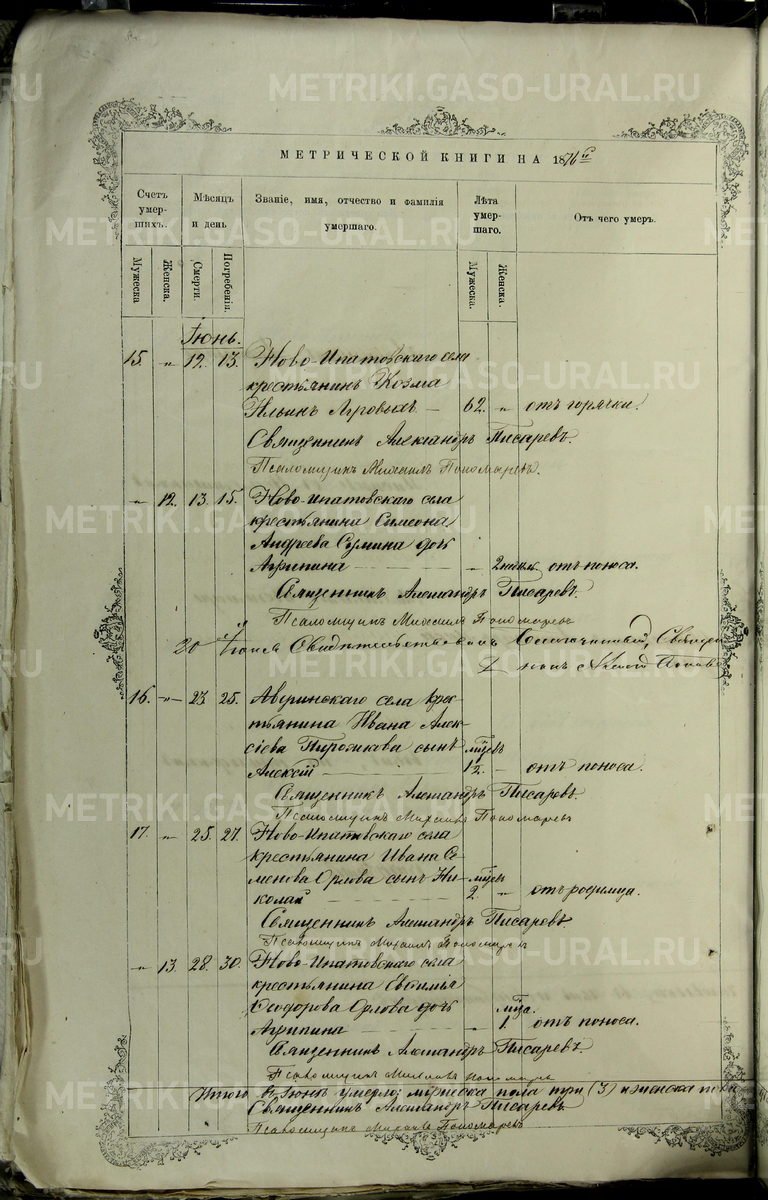 METRIKI.GASO-URAL.RU
МЕТРИЧЕСКОЙ КНИГИ НА 1876 й
Счетъ умер-шихъ. Мѣсяцъ и день Званіе, имя, отчество и фамилія умершаго. Лѣта умер-шаго. Отъ чего умеръ.
Мужеска Женска. Смерти. Погребенія. Мужеска Женска.
Іюнь.
15. " 12. 13. Ново-Ипатовскаго села
крестьянинъ Козма
Ильинъ — 62. " отъ горячки.
Священникъ Александръ Писаревъ.
Псаломщикъ Михаилъ Пономаревъ.
" 12. 13. 15. Ново-Ипатовскаго села
крестьянина Симеона
Андреева Сумина дочь
Агрипина — " 2 отъ поноса.
Священникъ Александръ Писаревъ.
Псаломщикъ Михаилъ Пономаревъ
20
16. " 23 25. Аверинскаго села крес-
тьянина Ивана Алек-
сіева Пирожкова сынъ мѣсяцъ
Алексій — 1½. — отъ поноса.
Священникъ Александръ Писаревъ.
Псаломщикъ Михаилъ Пономаревъ
17. " 25. 27. Ново-Ипатовскаго села
крестьянина Ивана Се-
менова Орлова сынъ Ни-
колай 2. " отъ родимца.
Священникъ Александръ Писаревъ
Псаломщикъ Михаилъ Пономаревъ
" 13. 28. 30. Ново-Ипатовскаго села
крестьянина Евѳимія
Ѳеодорова Орлова дочь мѣца.
Агрипина — " 1 отъ поноса.
Священникъ Александръ Писаревъ.
Псаломщикъ Михаилъ Пономаревъ
Итого въ Іюнѣ умерло: мужеска пола три (3) и женска
Священникъ Александръ Писаревъ
Псаломщикъ Михаилъ Пономаревъ